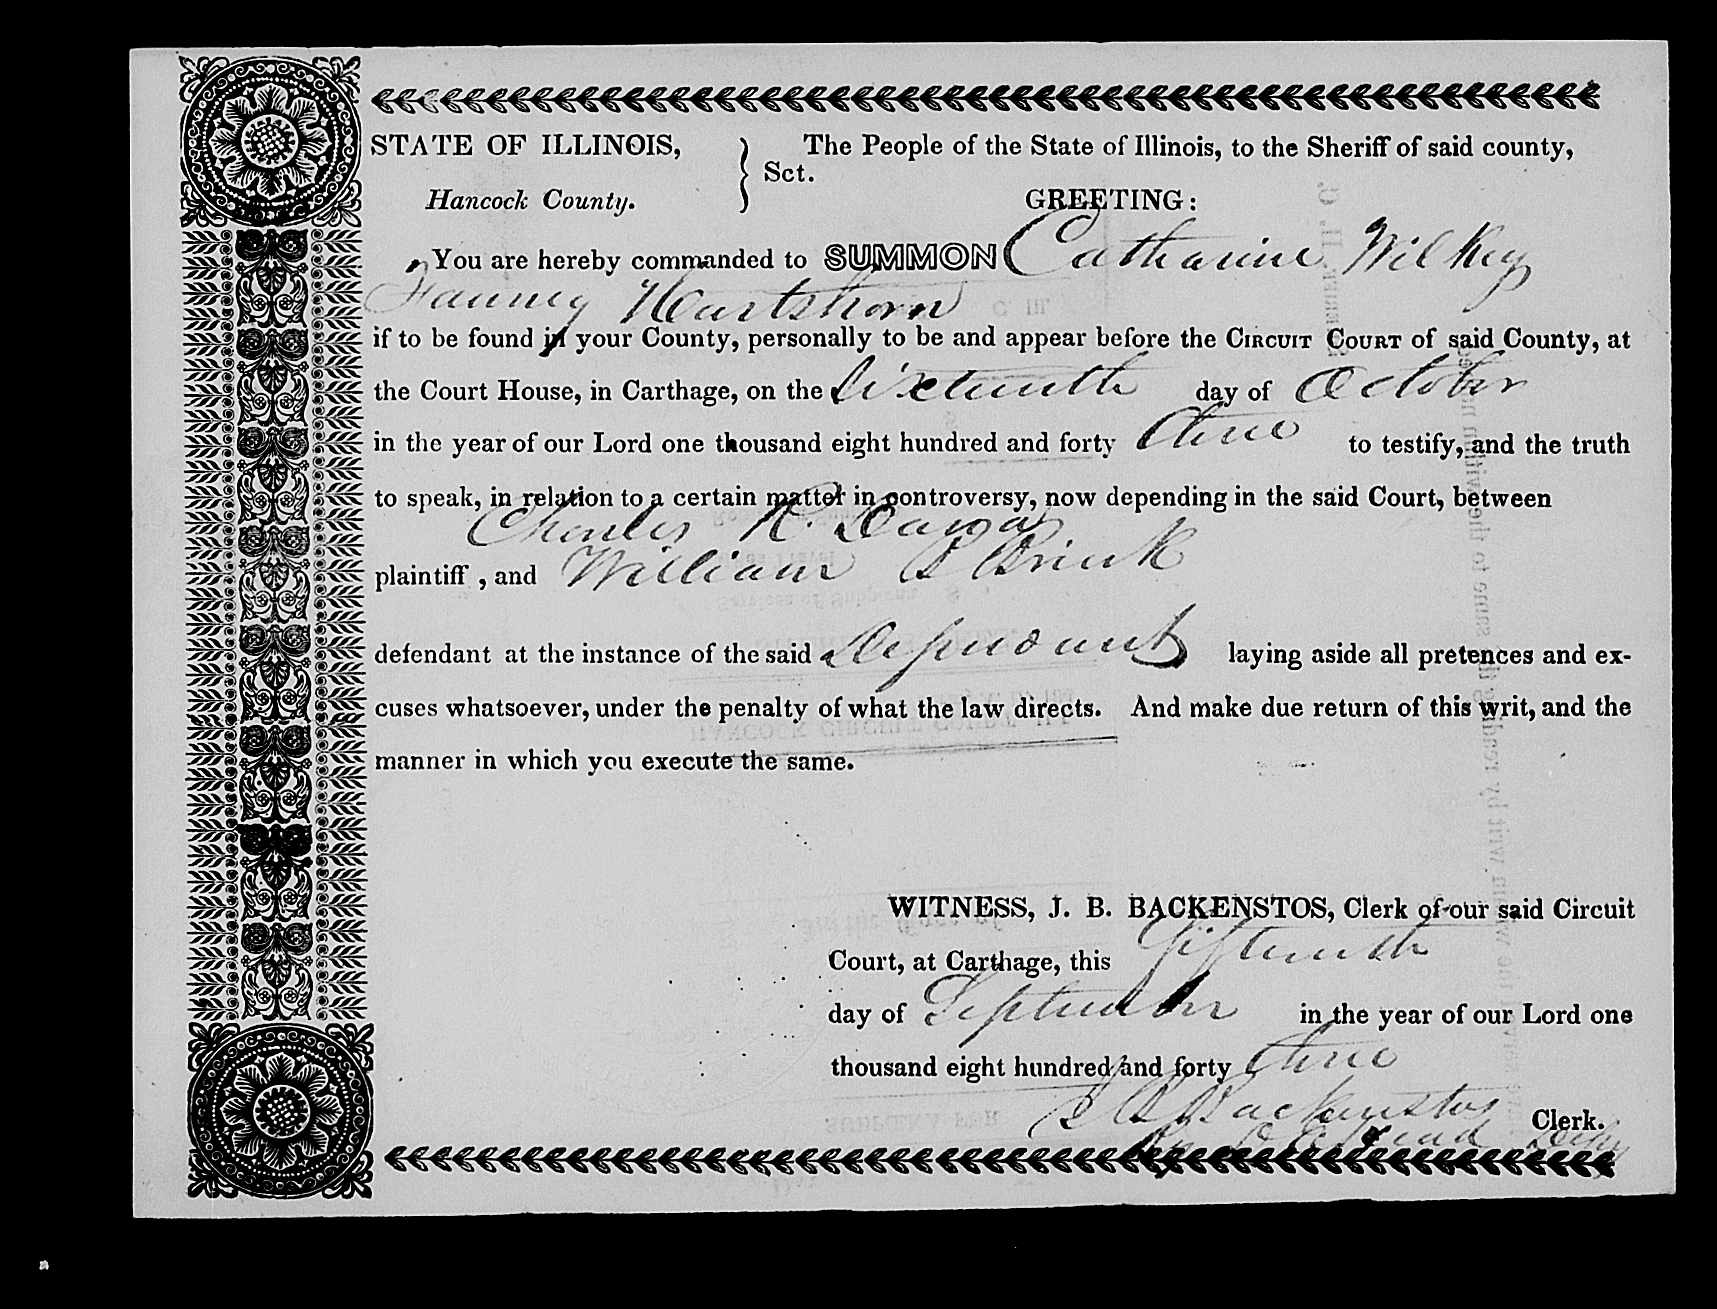 STATE OF ILLINOIS, } Sct. The People of the State of Illinois, to the Sheriff of said county,
Hancock County. GREETING:
You are hereby commanded to SUMMON Catharine Wilkey
Fanney Hartshorn
if to be found in your County, personally to be and appear before the CIRCUIT COURT of said County, at
the Court House, in Carthage, on the Sixteenth day of October
in the year of our Lord one thousand eight hundred and forty three to testify, and the truth
to speak, in relation to a certain matter in controversy, now depending in the said Court, between
Charles R. Dana
plaintiff , and William B Brink
defendant at the instance of the said Defendant laying aside all pretences and ex-
cuses whatsoever, under the penalty of what the law directs. And make due return of this writ, and the
manner in which you execute the same.
WITNESS, J. B. BACKENSTOS, Clerk of our said Circuit
Court, at Carthage, this Fifteenth
day of September in the year of our Lord one
thousand eight hundred and forty three
J B Backenstos Clerk.
By Head Depy